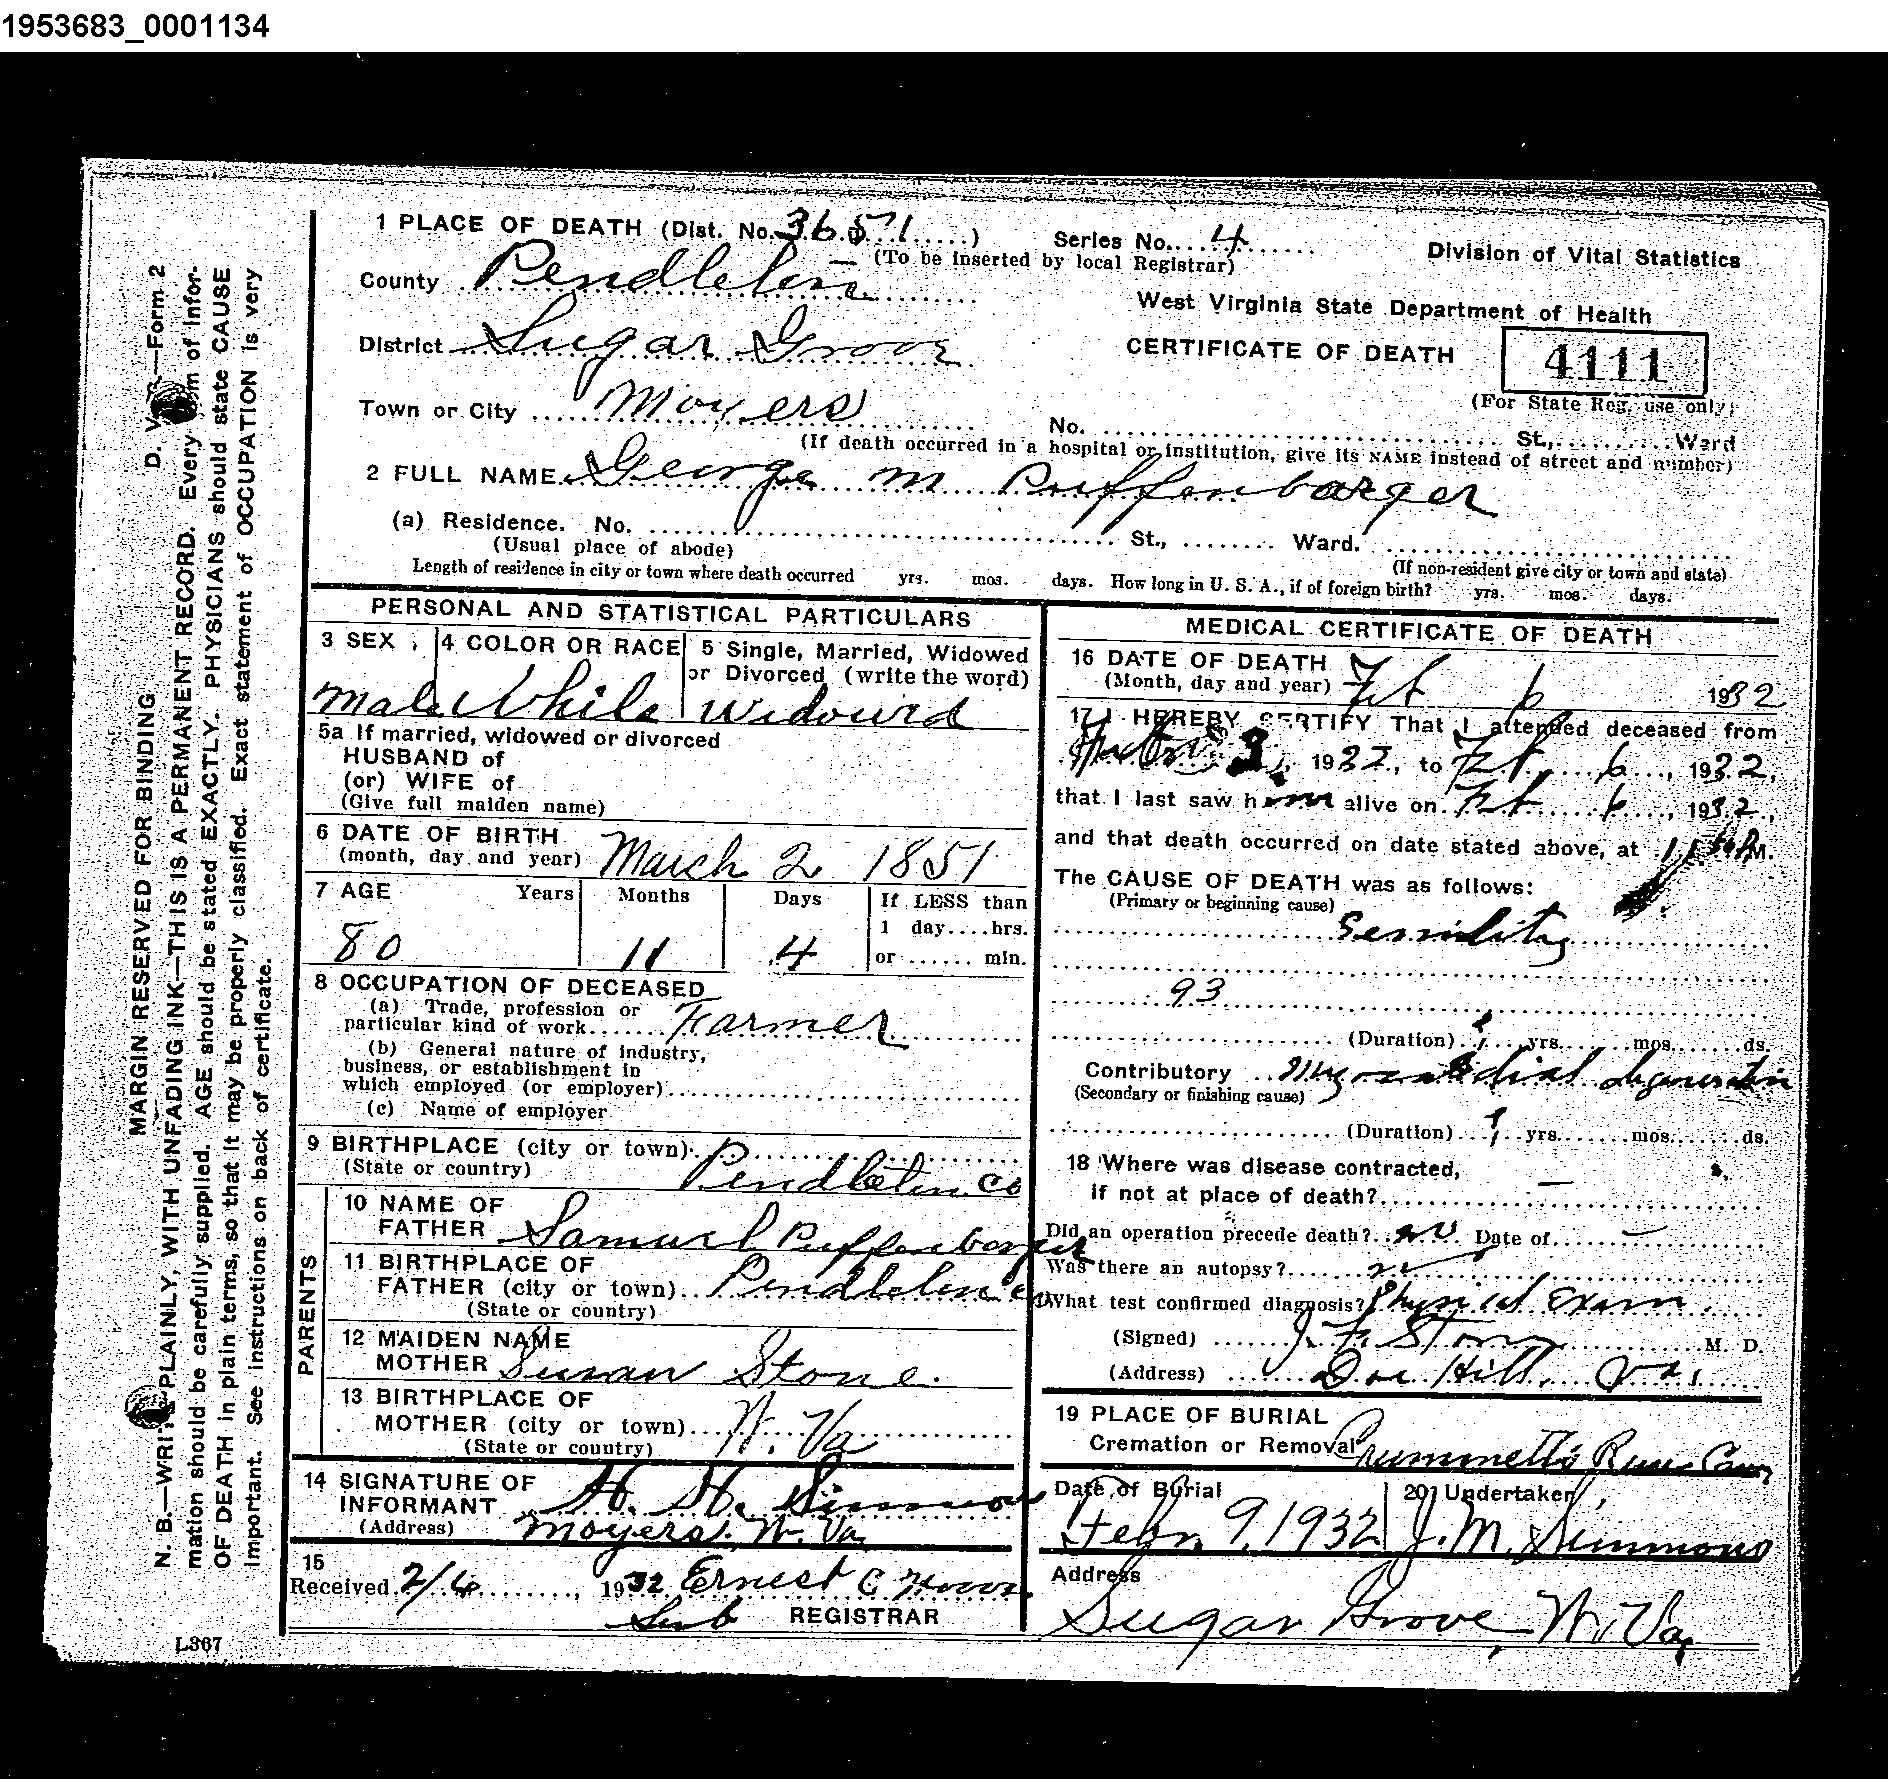 1953683_0001134
1 PLACE OF DEATH (Dist. No. 3651) Series No. 4
(To be inserted by local Registrar)
Division of Vital Statistics
County Pendleton
West Virginia State Department of Health
District Sugar Grove
CERTIFICATE OF DEATH 4111
(For State Reg. use only)
Town or City Moyers
No. St., Ward
(If death occurred in a hospital or institution, give its NAME instead of street and number)
2 FULL NAME George M Puffenbarger
(a) Residence. No. St., Ward.
(Usual place of abode) (If non-resident give city or town and state)
Length of residence in city or town where death occurred yrs. mos. days. How long in U. S. A., if of foreign birth? yrs. mos. days.
PERSONAL AND STATISTICAL PARTICULARS
3 SEX 4 COLOR OR RACE 5 Single, Married, Widowed
or Divorced (write the word)
Male White Widowed
5a If married, widowed or divorced
HUSBAND of
(or) WIFE of
(Give full maiden name)
6 DATE OF BIRTH
(month, day and year) March 2 1851
7 AGE Years Months Days If LESS than
1 day....hrs.
80 11 4 or ...... min.
8 OCCUPATION OF DECEASED
(a) Trade, profession or
particular kind of work Farmer
(b) General nature of industry,
business, or establishment in
which employed (or employer)
(c) Name of employer
9 BIRTHPLACE (city or town)
(State or country) Pendleton Co
PARENTS
10 NAME OF
FATHER Samuel Puffenbarger
11 BIRTHPLACE OF
FATHER (city or town) Pendleton Co
(State or country)
12 MAIDEN NAME
MOTHER Susan Stone.
13 BIRTHPLACE OF
MOTHER (city or town) W. Va
(State or country)
14 SIGNATURE OF
INFORMANT H. H. Simmons
(Address) Moyers, W. Va
15
Received 2/6, 1932 Ernest C
Sub REGISTRAR
MEDICAL CERTIFICATE OF DEATH
16 DATE OF DEATH
(Month, day and year) Feb 6 1932
17 I HEREBY CERTIFY That I attended deceased from
3, 1932, to Feb, 6, 1932,
that I last saw him alive on Feb 6, 1932,
and that death occurred on date stated above, at M.
The CAUSE OF DEATH was as follows:
(Primary or beginning cause)
Senility
93
(Duration) ? yrs. mos. ds.
Contributory Myocardial degeneration
(Secondary or finishing cause)
(Duration) ? yrs. mos. ds.
18 Where was disease contracted,
if not at place of death? —
Did an operation precede death? no Date of —
Was there an autopsy? no
What test confirmed diagnosis? Physical Exam.
(Signed) J. F. Stone M. D.
(Address) Doe Hill, Va.
19 PLACE OF BURIAL
Cremation or Removal Crummetts Run Cem
Date of Burial 20 Undertaker
Feb, 9, 1932 J. M. Simmons
Address
Sugar Grove, W. Va,
D. V. S.—Form 2
MARGIN RESERVED FOR BINDING
N. B.—WRITE PLAINLY, WITH UNFADING INK—THIS IS A PERMANENT RECORD. Every item of infor-
mation should be carefully supplied. AGE should be stated EXACTLY. PHYSICIANS should state CAUSE
OF DEATH in plain terms, so that it may be properly classified. Exact statement of OCCUPATION is very
important. See instructions on back of certificate.
L367